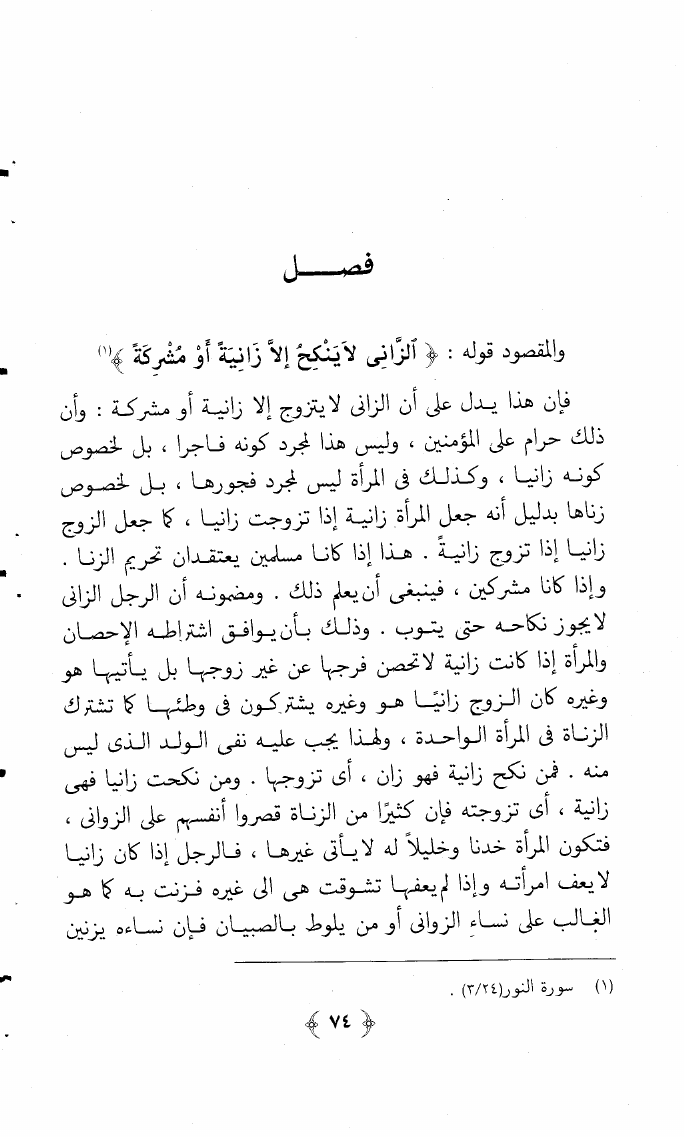 فصـــــل
والمقصود قوله : ﴿ ٱلزَّانِى لاَيَنْكِحُ إلاَّ زَانِيَةً أَوْ مُشْرِكَةً ﴾(١)
فإن هذا يدل على أن الزانى لايتزوج إلا زانية أو مشركة : وأن
ذلك حرام على المؤمنين ، وليس هذا لمجرد كونه فاجرا ، بل لخصوص
كونه زانيا ، وكذلك فى المرأة ليس لمجرد فجورها ، بل لخصوص
زناها بدليل أنه جعل المرأة زانية إذا تزوجت زانيا ، كما جعل الزوج
زانيا إذا تزوج زانيةً . هذا إذا كانا مسلمين يعتقدان تحريم الزنا .
وإذا كانا مشركين ، فينبغى أن يعلم ذلك . ومضمونه أن الرجل الزانى
لايجوز نكاحه حتى يتوب . وذلك بأن يوافق اشتراطه الإحصان
والمرأة إذا كانت زانية لاتحصن فرجها عن غير زوجها بل يأتيها هو
وغيره كان الزوج زانيًا هو وغيره يشتركون فى وطئها كما تشترك
الزناة فى المرأة الواحدة ، ولهذا يجب عليه نفى الولد الذى ليس
منه . فمن نكح زانية فهو زان ، أى تزوجها . ومن نكحت زانيا فهى
زانية ، أى تزوجته فإن كثيرًا من الزناة قصروا أنفسهم على الزوانى ،
فتكون المرأة خدنا وخليلاً له لايأتى غيرها ، فالرجل إذا كان زانيا
لايعف امرأته وإذا لم يعفها تشوقت هى الى غيره فزنت به كما هو
الغالب على نساء الزوانى أو من يلوط بالصبيان فإن نساءه يزنين
(١) سورة النور(٣/٢٤) .
﴿ ٧٤ ﴾